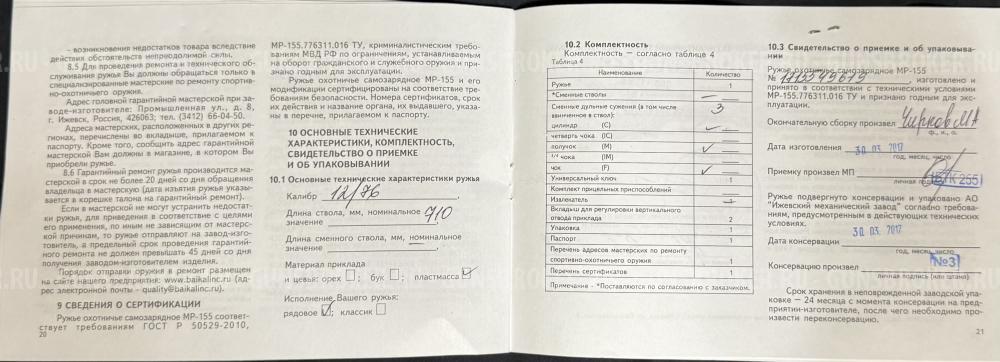 - возникновения недостатков товара вследствие
действия обстоятельств непреодолимой силы.
8.5 Для проведения ремонта и технического об-
служивания ружья Вы должны обращаться только в
специализированные мастерские по ремонту спортив-
но-охотничьего оружия.
Адрес головной гарантийной мастерской при за-
воде-изготовителе: Промышленная ул., д. 8,
г. Ижевск, Россия, 426063; тел. (3412) 66-04-50.
Адреса мастерских, расположенных в других ре-
гионах, перечислены во вкладыше, прилагаемом к
паспорту. Кроме того, сообщить адрес гарантийной
мастерской Вам должны в магазине, в котором Вы
приобрели ружье.
8.6 Гарантийный ремонт ружья производится ма-
стерской в срок не более 20 дней со дня обращения
владельца в мастерскую (дата изъятия ружья указы-
вается в корешке талона на гарантийный ремонт).
Если в мастерской не могут устранить недостат-
ки ружья, для приведения в соответствие с целями
его применения, по иным не зависящим от мастерс-
кой причинам, то ружье отправляют на завод-изго-
товитель, а предельный срок проведения гарантий-
ного ремонта не должен превышать 45 дней со дня
получения заводом-изготовителем.
Порядок отправки оружия в ремонт размещен
на сайте нашего предприятия: www.baikalinc.ru (ад-
рес электронной почты - quality@baikalinc.ru).
9 СВЕДЕНИЯ О СЕРТИФИКАЦИИ
Ружье охотничье самозарядное МР-155 соответ-
ствует требованиям ГОСТ Р 50529-2010,
20
МР-155.776311.016 ТУ, криминалистическим требо-
ваниям МВД РФ по ограничениям, устанавливаемым
на оборот гражданского и служебного оружия и при-
знано годным для эксплуатации.
Ружье охотничье самозарядное МР-155 и его
модификации сертифицированы на соответствие тре-
бованиям безопасности. Номера сертификатов, срок
их действия и название органа, их выдавшего, указа-
ны в перечне, прилагаемом к паспорту.
10 ОСНОВНЫЕ ТЕХНИЧЕСКИЕ
ХАРАКТЕРИСТИКИ, КОМПЛЕКТНОСТЬ,
СВИДЕТЕЛЬСТВО О ПРИЕМКЕ
И ОБ УПАКОВЫВАНИИ
10.1 Основные технические характеристики ружья
Калибр 12/76
Длина ствола, мм, номинальное 710
значение
Длина сменного ствола, мм, номинальное
значение
Материал приклада
и цевья: орех ; бук ; пластмасса
Исполнение Вашего ружья:
рядовое ; классик
10.2 Комплектность
Комплектность — согласно таблице 4
Таблица 4
Наименование Количество
Ружье 1
*Сменные стволы
Сменные дульные сужения (в том числе 3
ввинченное в ствол):
цилиндр (C)
четверть чока (IC)
получок (M)
3/4 чока (IM)
чок (F)
Универсальный ключ 1
Комплект прицельных приспособлений
Извлекатель 1
Вкладыш для регулировки вертикального
отвода приклада 2
Упаковка 1
Паспорт 1
Перечень адресов мастерских по ремонту
спортивно-охотничьего оружия 1
Перечень сертификатов 1
Примечание - *Поставляются по согласованию с заказчиком.
10.3 Свидетельство о приемке и об упаковыва-
нии
Ружье охотничье самозарядное МР-155
№ , изготовлено и
принято в соответствии с техническими условиями
МР-155.776311.016 ТУ и признано годным для экс-
плуатации.
Окончательную сборку произвел Чирков МА
ф., и., о.
Дата изготовления 30 03. 2017
год, месяц, число
Приемку произвел МП 255
личная подпись
Ружье подвергнуто консервации и упаковано АО
"Ижевский механический завод" согласно требова-
ниям, предусмотренным в действующих технических
условиях.
Дата консервации 30 03. 2017
год, месяц, число
Консервацию произвел №3
личная подпись (или штамп)
Срок хранения в неповрежденной заводской упа-
ковке — 24 месяца с момента консервации на пред-
приятии-изготовителе, после чего необходимо про-
извести переконсервацию.
21